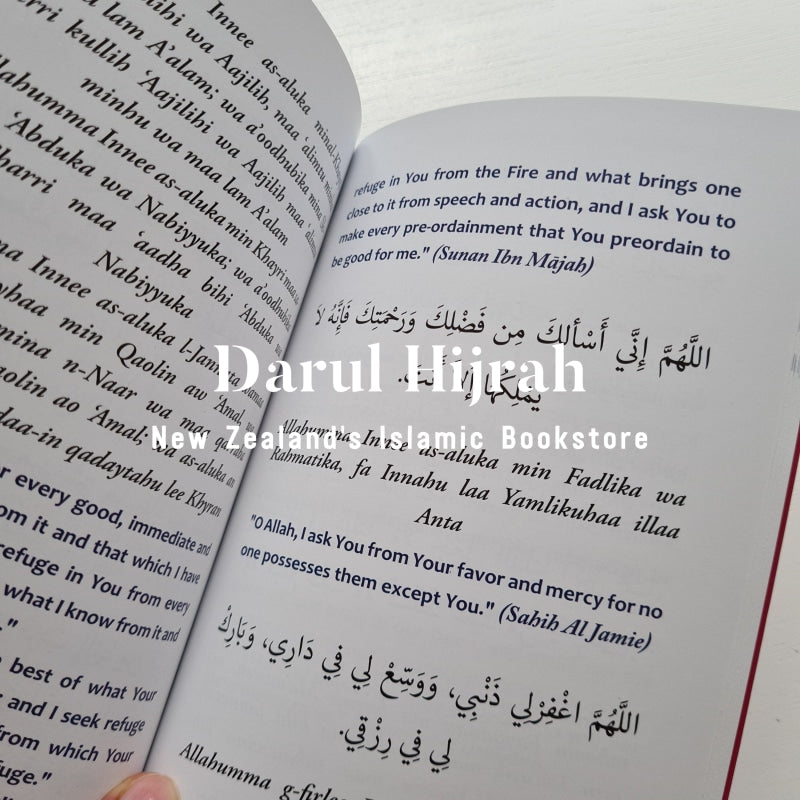 Innee as-aluka minal-
lam A'alam; wa a'oodhubika mina
kullih 'Aajilihi wa Aajilih, maa 'alimtu
minhu wa maa lam A'lam
Allahumma Innee as-aluka min Khayri maa
'Abduka wa Nabiyyuka; wa a'oodhubika
maa 'aadha bihi 'Abduka
Nabiyyuka
Innee as-aluka l-Jannata
min Qaolin aw 'Amal, wa
mina n-Naar wa maa
ao 'Amal; wa as-aluka an
qadaytahu lee Khyran
every good, immediate and
from it and that which I have
refuge in You from every
what I know from it and
best of what Your
and I seek refuge
from which Your
refuge in You from the Fire and what brings one
close to it from speech and action, and I ask You to
make every pre-ordainment that You preordain to
be good for me." (Sunan Ibn Mājah)
اللَّهُمَّ إِنِّي أَسْأَلُكَ مِن فَضْلِكَ وَرَحْمَتِكَ فَإِنَّهُ لَا
يَمْلِكُهَا إِلَّا أَنْتَ.
Darul Hijrah
New Zealand's Islamic Bookstore
Allahumma Innee as-aluka min Fadlika wa
Rahmatika, fa Innahu laa Yamlikuhaa illaa
Anta
"O Allah, I ask You from Your favor and mercy for no
one possesses them except You." (Sahih Al Jamie)
اللَّهُمَّ اغْفِرْلِي ذَنْبِي، وَوَسِّعْ لِي فِي دَارِي، وَبَارِكْ
لِي فِي رِزْقِي.
Allahumma